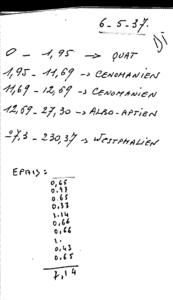 6-5-37.
0 - 1,95 → QUAT
1,95 - 11,69 → CENOMANIEN
11,69 - 12,69 → CENOMANIEN
12,69 - 27,30 → ALBO-APTIEN
27,3 - 230,37 → WESTPHALIEN
EPAIS:
0,65
0,37
0.65
0,33
3.14
0,66
0,66
1.
0,43
0.65
7,14